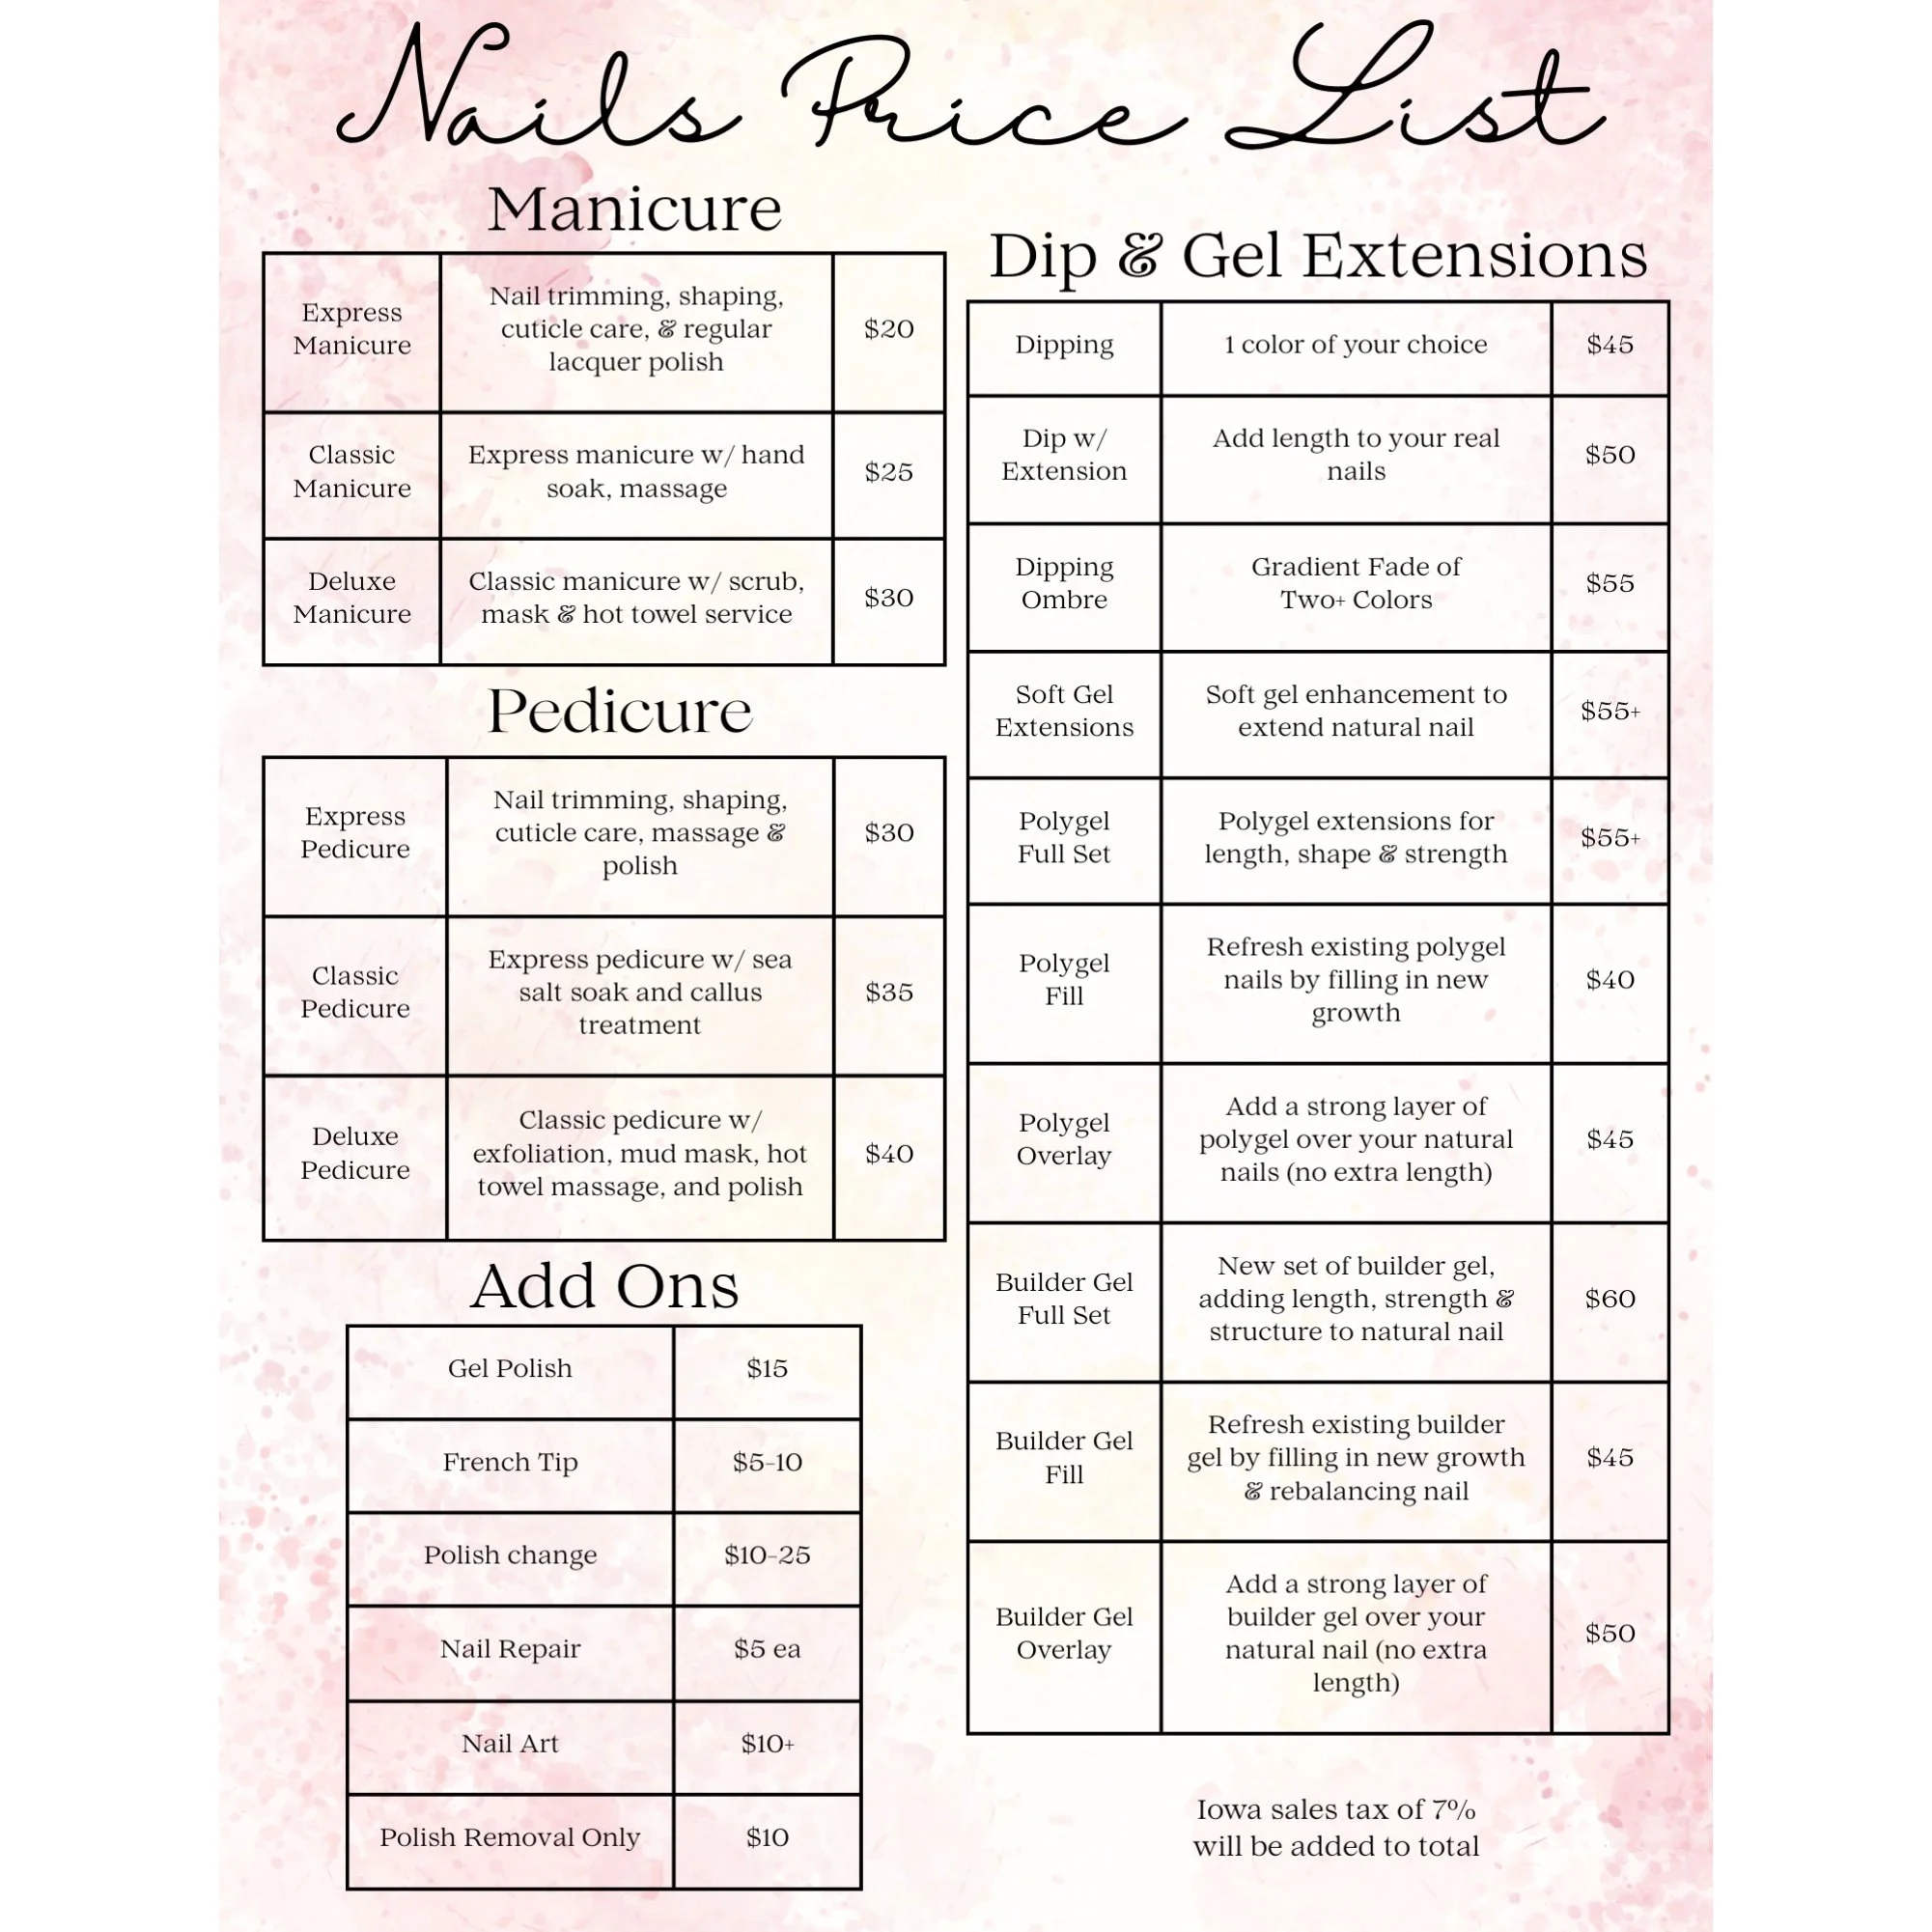 Nails Price List
Manicure
Express
Manicure
Nail trimming, shaping,
cuticle care, & regular
lacquer polish
$20
Classic
Manicure
Express manicure w/ hand
soak, massage
$25
Deluxe
Manicure
Classic manicure w/ scrub,
mask & hot towel service
$30
Pedicure
Express
Pedicure
Nail trimming, shaping,
cuticle care, massage &
polish
$30
Classic
Pedicure
Express pedicure w/ sea
salt soak and callus
treatment
$35
Deluxe
Pedicure
Classic pedicure w/
exfoliation, mud mask, hot
towel massage, and polish
$40
Add Ons
Gel Polish
$15
French Tip
$5-10
Polish change
$10-25
Nail Repair
$5 ea
Nail Art
$10+
Polish Removal Only
$10
Dip & Gel Extensions
Dipping
1 color of your choice
$45
Dip w/
Extension
Add length to your real
nails
$50
Dipping
Ombre
Gradient Fade of
Two+ Colors
$55
Soft Gel
Extensions
Soft gel enhancement to
extend natural nail
$55+
Polygel
Full Set
Polygel extensions for
length, shape & strength
$55+
Polygel
Fill
Refresh existing polygel
nails by filling in new
growth
$40
Polygel
Overlay
Add a strong layer of
polygel over your natural
nails (no extra length)
$45
Builder Gel
Full Set
New set of builder gel,
adding length, strength &
structure to natural nail
$60
Builder Gel
Fill
Refresh existing builder
gel by filling in new growth
& rebalancing nail
$45
Builder Gel
Overlay
Add a strong layer of
builder gel over your
natural nail (no extra
length)
$50
Iowa sales tax of 7%
will be added to total